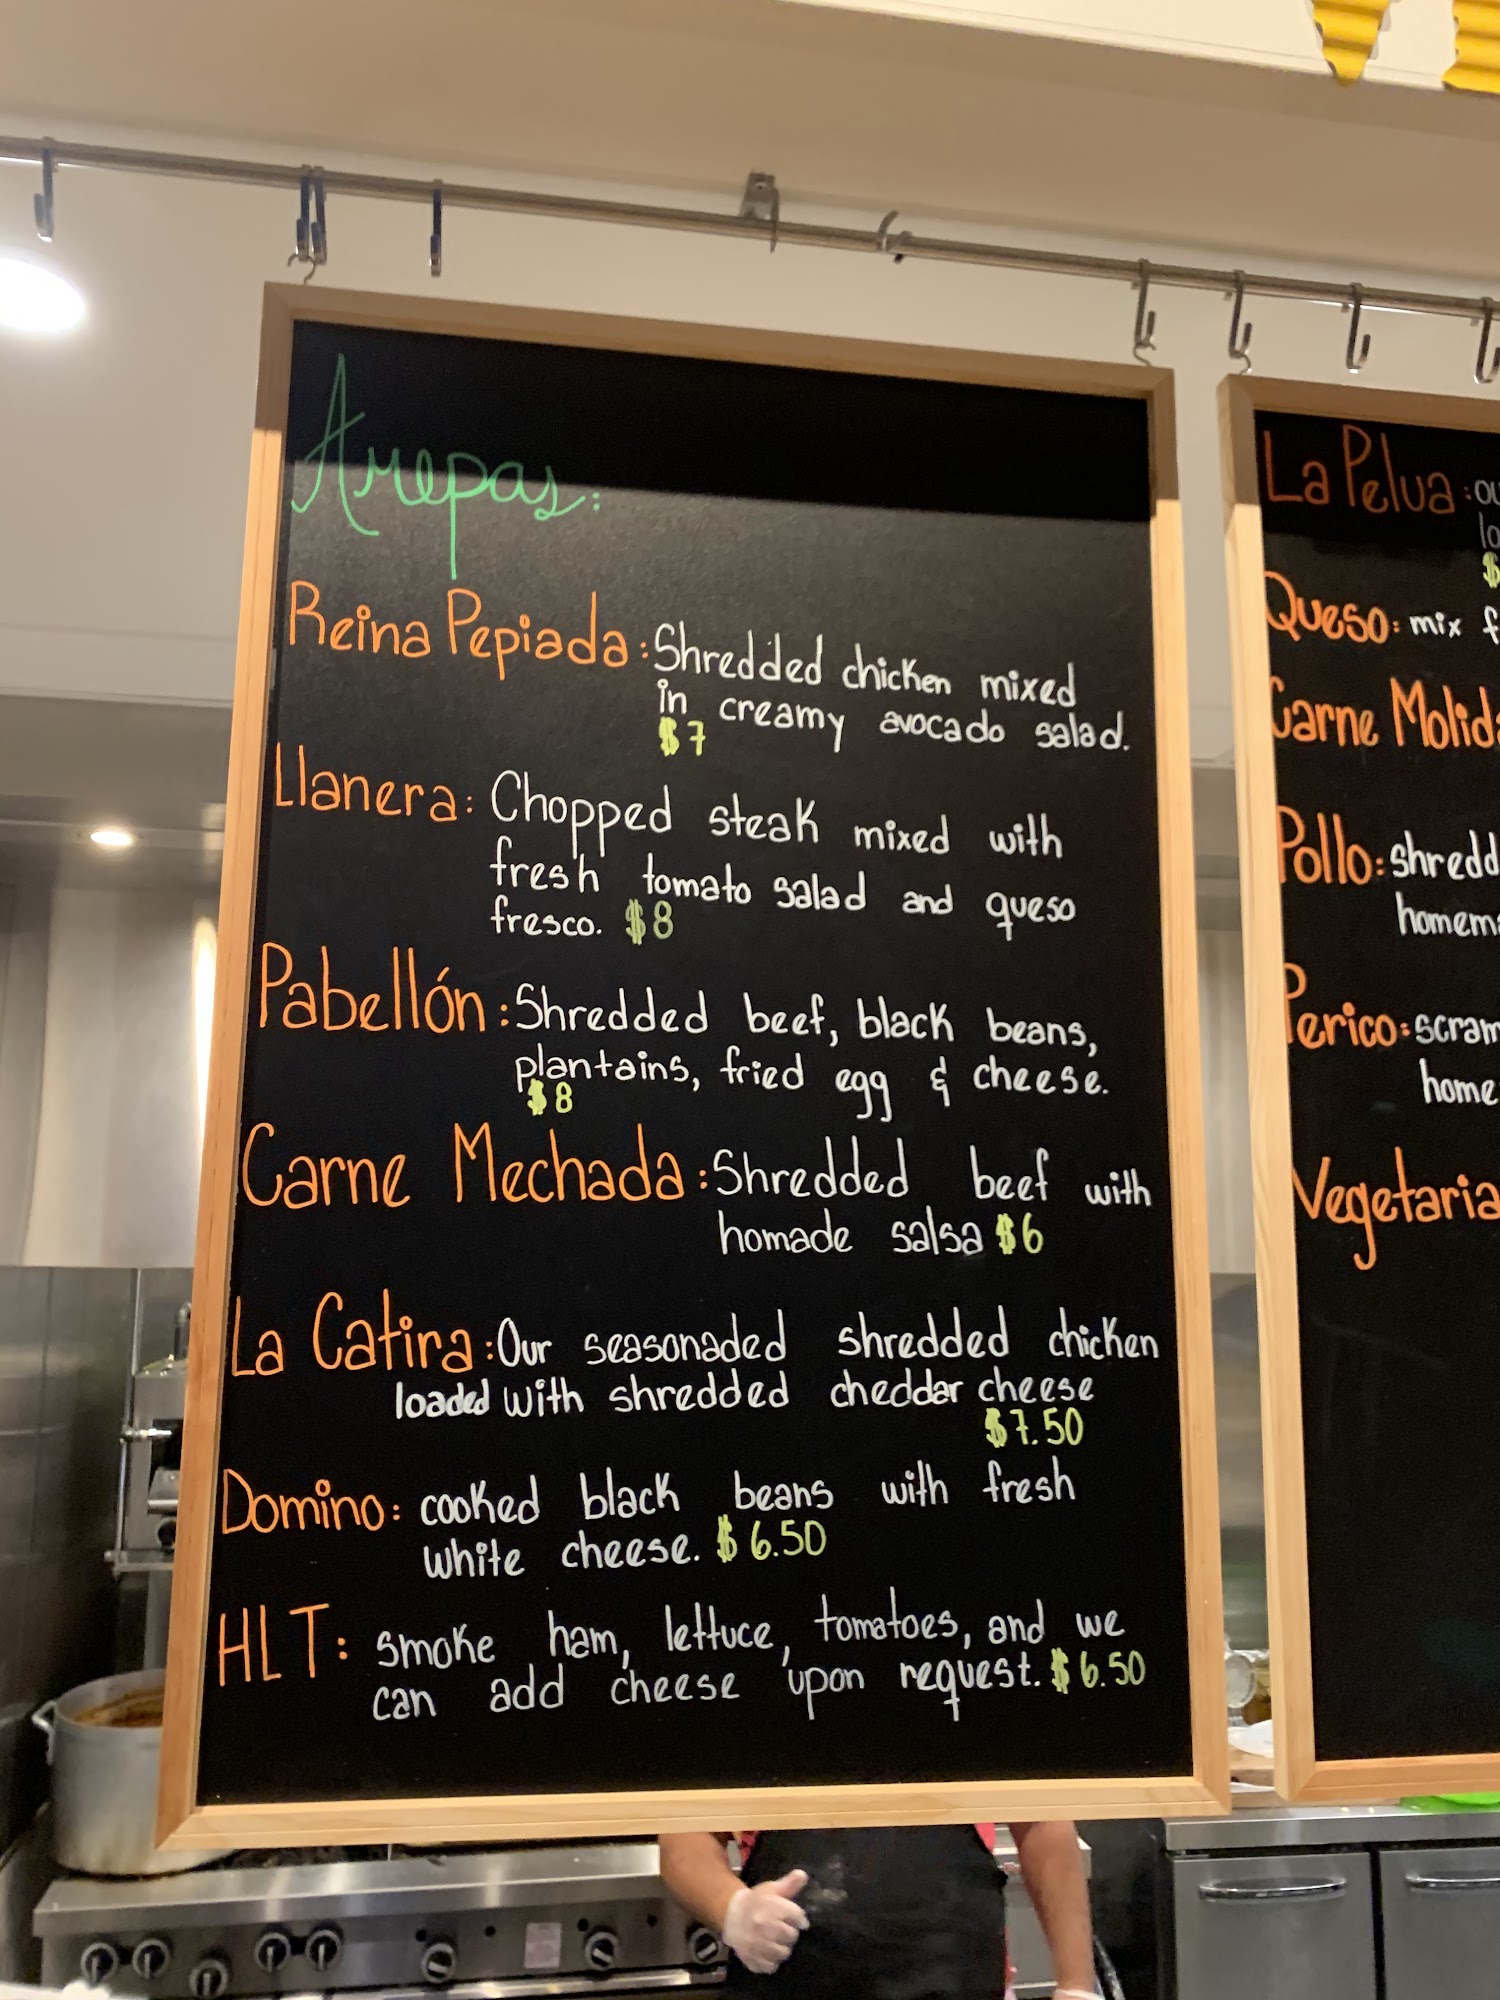 Arepas:
Reina Pepiada: Shredded chicken mixed
in creamy avocado salad.
$7
Llanera: Chopped steak mixed with
fresh tomato salad and queso
fresco. $8
Pabellón: Shredded beef, black beans,
plantains, fried egg & cheese.
$8
Carne Mechada: Shredded beef with
homade salsa $6
La Catira: Our seasonaded shredded chicken
loaded with shredded cheddar cheese
$7.50
Domino: cooked black beans with fresh
white cheese. $6.50
HLT: smoke ham, lettuce, tomatoes, and we
can add cheese upon request. $6.50
La Pelua:
$
Queso: mix
Carne
Pollo:
Perico: